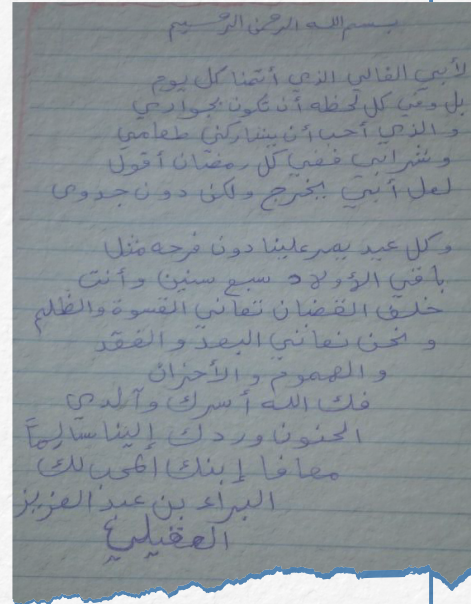 بسم الله الرحمن الرحيم
لأبي الغالي الذي أتمنا كل يوم
بل وفي كل لحظه أن تكون بجواري
و الذي أحب أن يشاركني طعامي
وشرابي ففي كل رمضان أقول
لعل أبي يخرج ولكن دون جدوى
وكل عيد يمر علينا دون فرحه مثل
باقي الأولاد سبع سنين وأنت
خلف القضبان تعاني القسوة والظلم
و نحن نعاني البعد و الفقد
و الهموم و الأحزان
فك الله أسرك وآلدي
الحنون وردك إلينا سالماً
معافا إبنك المحب لك
البراء بن عبد العزيز
العقيلي